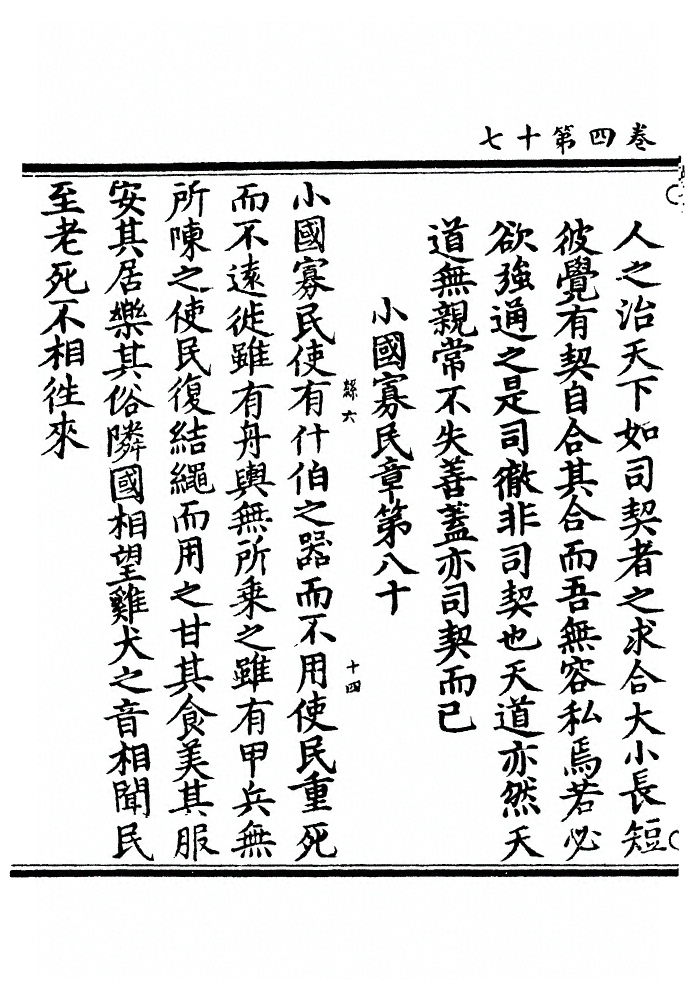 卷四第十七
人之治天下如司契者之求合大小長短
彼覺有契自合其合而吾無容私焉若必
欲強通之是司徹非司契也天道亦然天
道無親常不失善蓋亦司契而已
小國寡民章第八十
小國寡民使有什伯之器而不用使民重死
緜六
十四
而不遠徙雖有舟輿無所乗之雖有甲兵無
所陳之使民復結繩而用之甘其食美其服
安其居樂其俗隣國相望雞犬之音相聞民
至老死不相徃來